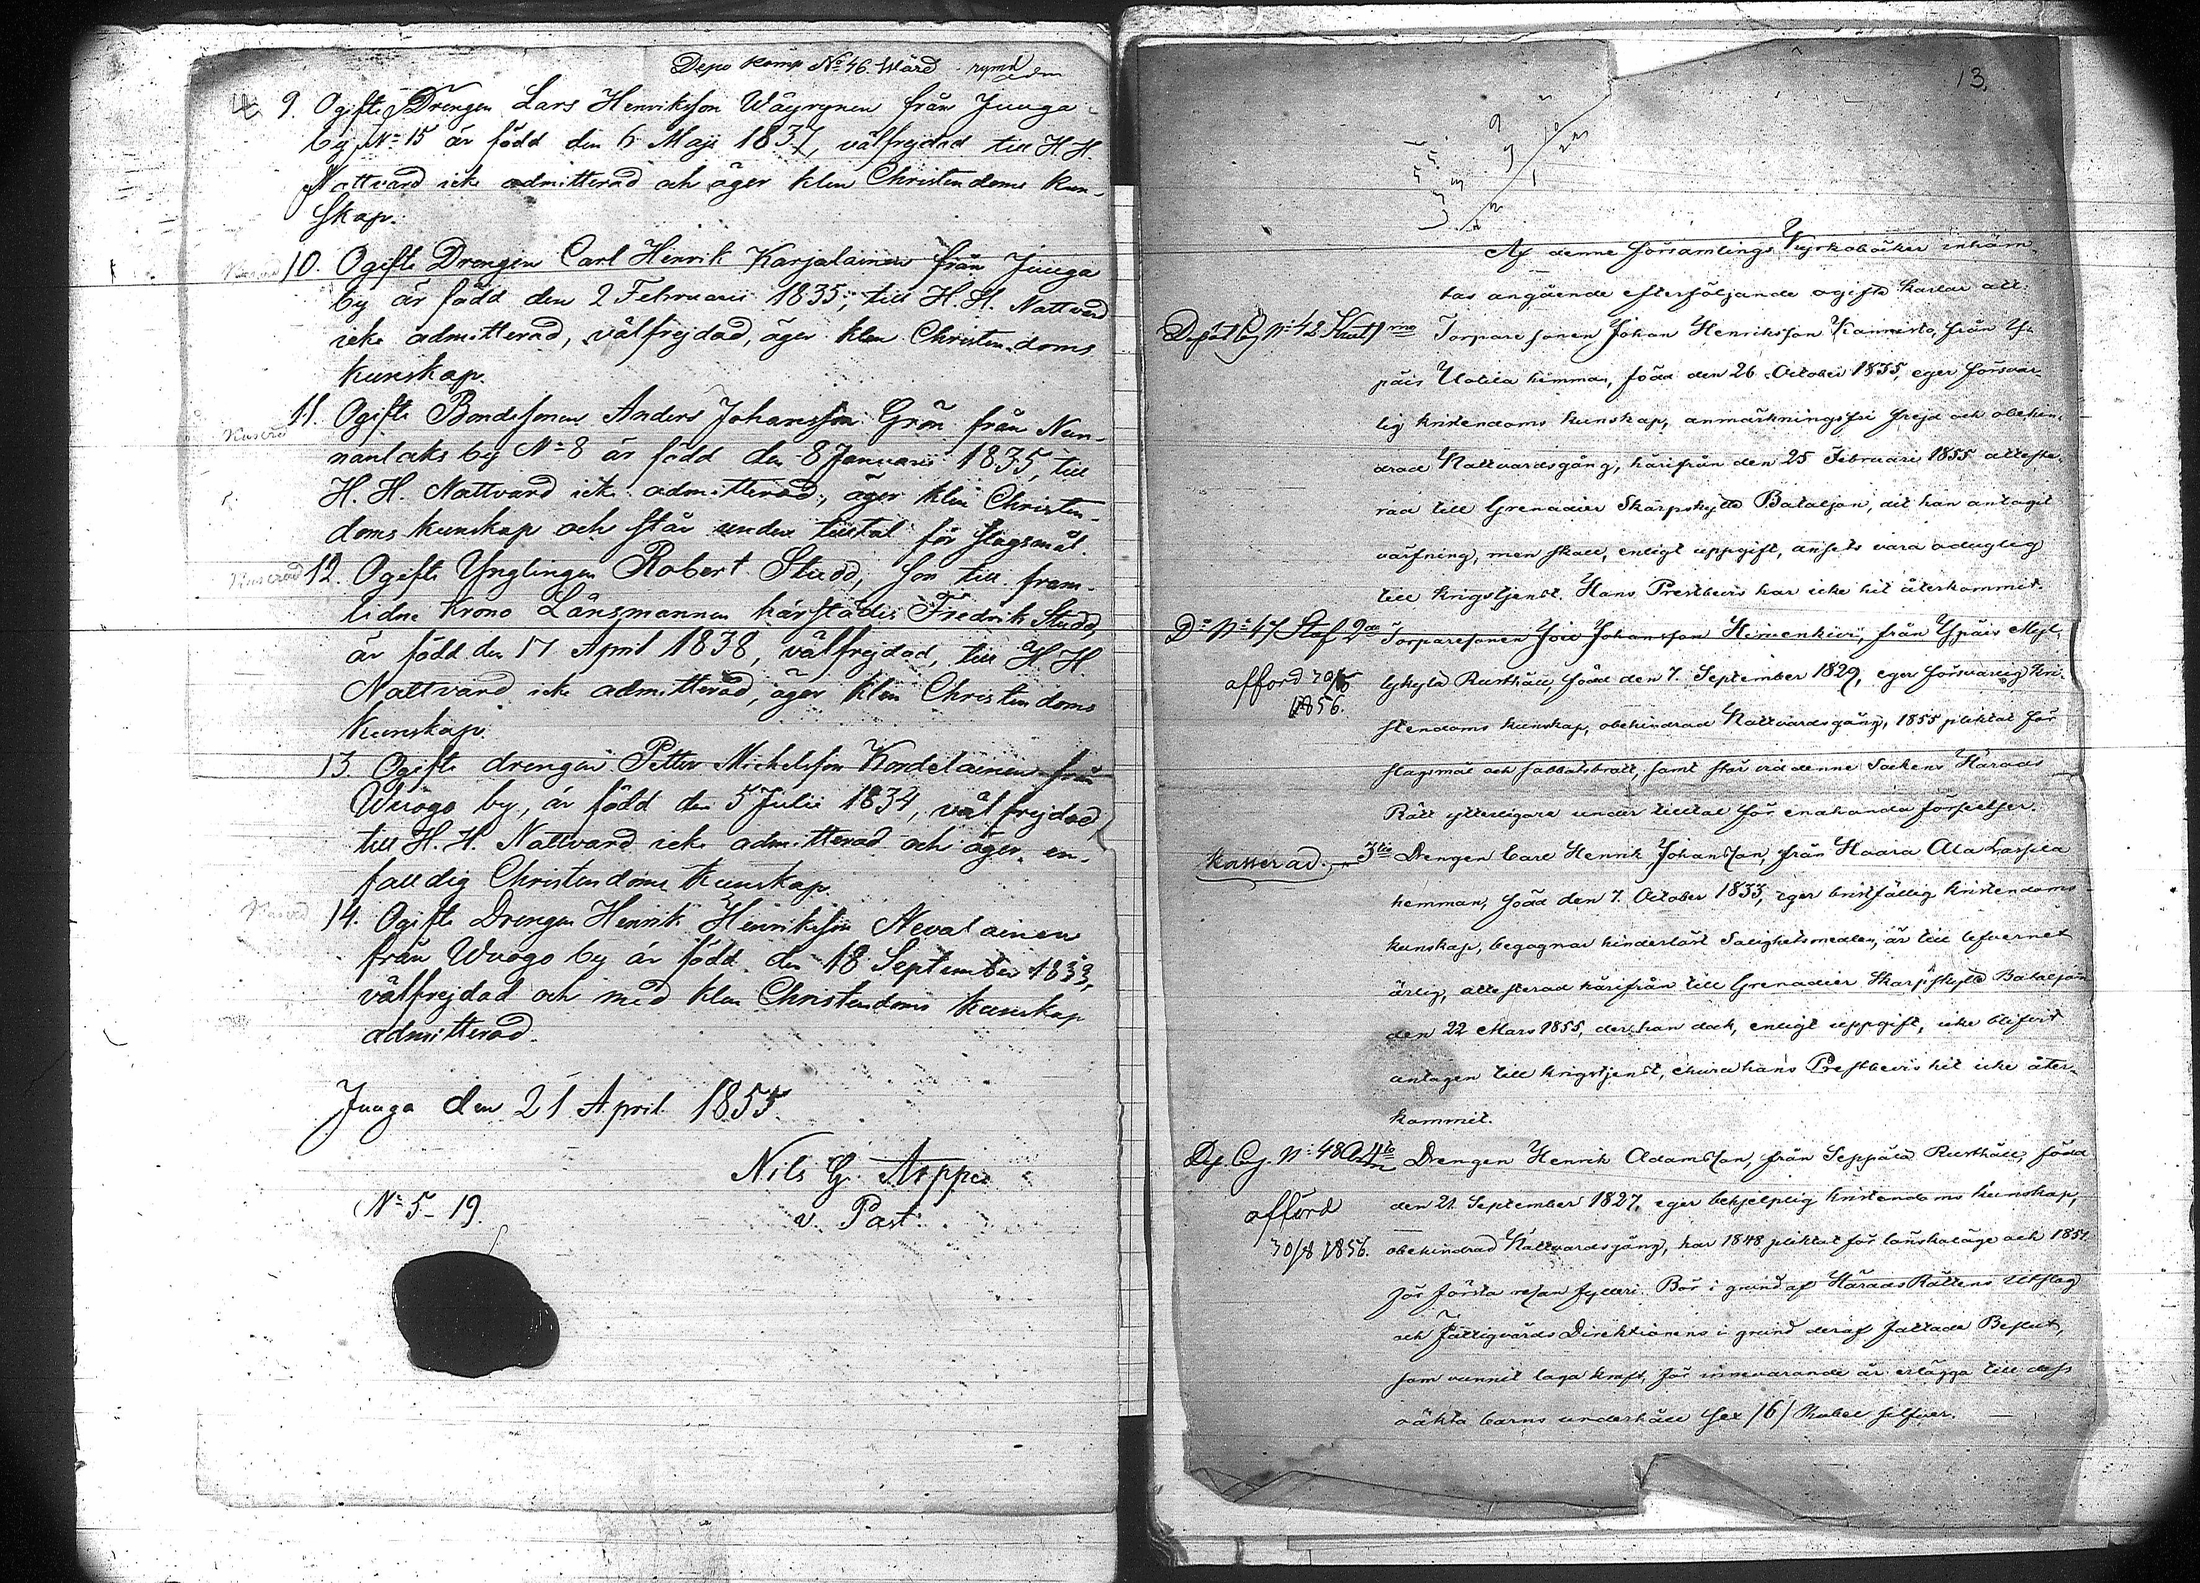 Depo Komp No 46. Wärd. rymd
4 9. Ogifte Drengen Lars Henriksson Wäyrynen från Juuga
by No 15 är född den 6 Maji 1837, välfrejdad till H. H.
Nattvard icke admitterad och äger klen Christendoms kun-
skap.
10. Ogifte Drengen Carl Henrik Karjalainen från Juuga
by är född den 2 Februarii 1835, till H. H. Nattvard
icke admitterad, välfrejdad, äger klen Christendoms
kunskap.
Kasserad
11. Ogifte Bondesonen Anders Johansson Grön från Nun-
nanlaks by No 8 är född den 8 Januarii 1835, till
H. H. Nattvard icke admitterad, äger klen Christen-
doms kunskap och står under tilltal för slagsmål.
Kasserad 12. Ogifte Ynglingen Robert Studd, son till fram-
lidne Krono Länsmannen härstädes Fredrik Studd,
är född den 17 April 1838, välfrejdad, till H. H.
Nattvard icke admitterad, äger klen Christendoms
kunskap.
13. Ogifte drengen Petter Michelsson Kordelainen från
Wuogo by, är född den 5 Julii 1834, välfrejdad
till H. H. Nattvard icke admitterad och äger en-
faldig Christendoms kunskap.
Kasserad 14. Ogifte Drengen Henrik Henriksson Nevalainen
från Wuogo by är född den 18 September 1833,
välfrejdad och med klen Christendoms kunskap
admitterad.
Juuga den 21 April 1855.
Nils G. Arppe
v. Past.
No 5-19.
13.
Af denne församlings Kyrkoböcker inhäm-
tas angående efterföljande ogifte karlar att:
Depôt Cg No 48 1mo Torparesonen Johan Henriksson Kannisto, från Y-
päis Uotila hemman, född den 26 October 1835, eger försvar-
lig kristendoms kunskap, anmärkningsfri frejd och obehin-
drad Nattvardsgång, härifrån den 25 Februari 1855 atteste-
rad till Grenadier Skarpskytte Bataljon, dit han antagit
värfning, men skall, enligt uppgift, ansets vara oduglig
till krigstjenst. Hans Prestbevis har icke hit återkommit.
Do No 47 2do Torparesonen Johansson Hiivenkivi, från Ypäis Myl-
lykylä Rusthåll, född den 7. September 1829, eger försvarlig kri-
1856.
stendoms kunskap, obehindrad Nattvardsgång, 1855 pliktat för
slagsmål och sabbatsbrott, samt står vid denne Sockens Härads
Rätt ytterligare under tilltal för enahanda förseelser.
Kasserad. 3tio Drengen Carl Henrik Johansson, från Haara Ala Laspila
hemman, född den 7. October 1833, eger bristfällig kristendoms
kunskap, begagnar hinderlöst Salighetsmedlen, är till lefvernet
ärlig, attesterad härifrån till Grenadier Skarpskytte Bataljon
den 22 Mars 1855, der han dock, enligt uppgift, icke blifvit
antagen till krigstjenst, ehuru hans Prestbevis hit icke åter-
kommit.
Dep. Cg. No 48 4to Drengen Henrik Adamsson, från Seppälä Rusthåll, född
den 21 September 1827, eger behjelplig kristendoms kunskap,
afförd
30/8 1856. obehindrad Nattvardsgång, har 1848 pliktat för lönskaläge och 1851
för första resan fylleri. Bör i grund af Härads Rättens Utslag
och Fattigvårds Direktionens i grund deraf fattade Beslut,
som vunnit laga kraft, för innevarande år erlägga till dess
oäkta barns underhåll sex /6/ Rubel silfver.